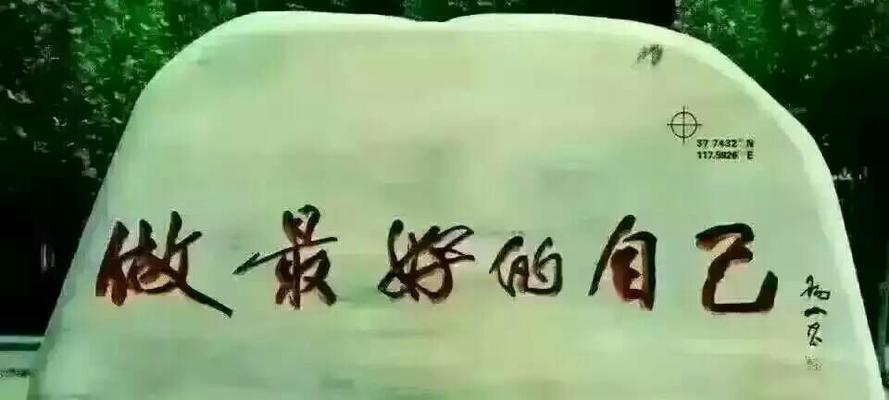 37.7432° N
117.5826° E
做最好的自己